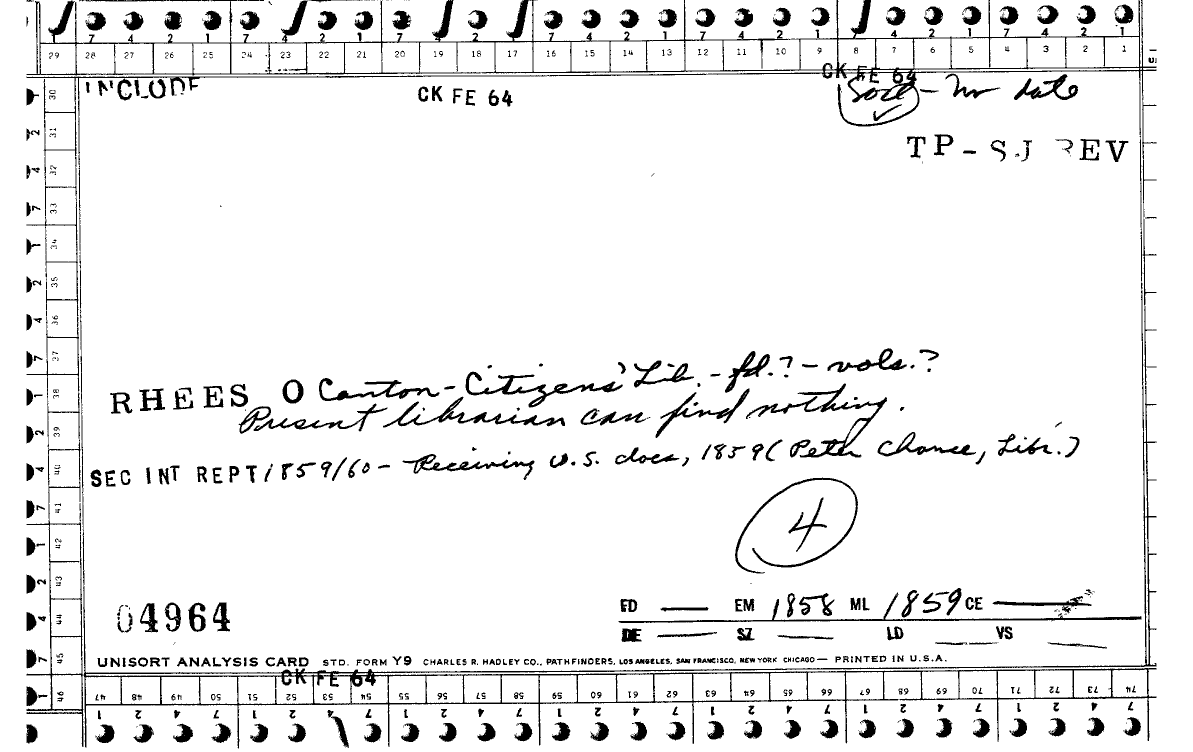 7 4 2 1 7 4 2 1 7 4 2 1 7 4 2 1 7 4 2 1 7 4 2 1 7 4 2 1
29 28 27 26 25 24 23 22 21 20 19 18 17 16 15 14 13 12 11 10 9 8 7 6 5 4 3 2 1
INCLUDE CK FE 64 CK FE 64
Soc - no date
TP-SJ REV
RHEES O Canton-Citizens' Lib. - fd.? - vols.?
Present librarian can find nothing.
SEC INT REPT 1859/60 - Receiving U.S. docs, 1859 (Peter Chance, Libr.)
4
04964
FD — EM 1858 ML 1859 CE —
DE — SZ — LD — VS —
UNISORT ANALYSIS CARD STD. FORM Y9 CHARLES R. HADLEY CO., PATHFINDERS, LOS ANGELES, SAN FRANCISCO, NEW YORK CHICAGO — PRINTED IN U.S.A.
CK FE 64
30 31 32 33 34 35 36 37 38 39 40 41 42 43 44 45 46
1 2 4 7 1 2 4 7 1 2 4 7 1 2 4 7 1
47 48 49 50 51 52 53 54 55 56 57 58 59 60 61 62 63 64 65 66 67 68 69 70 71 72 73 74
1 2 4 7 1 2 4 7 1 2 4 7 1 2 4 7 1 2 4 7 1 2 4 7 1 2 4 7